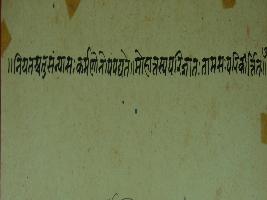 ॥नियतस्यतुसंन्यासः कर्मणोनोपपद्यते॥मोहात्तस्यपरित्यागःतामसःपरिकीर्त्तितः॥